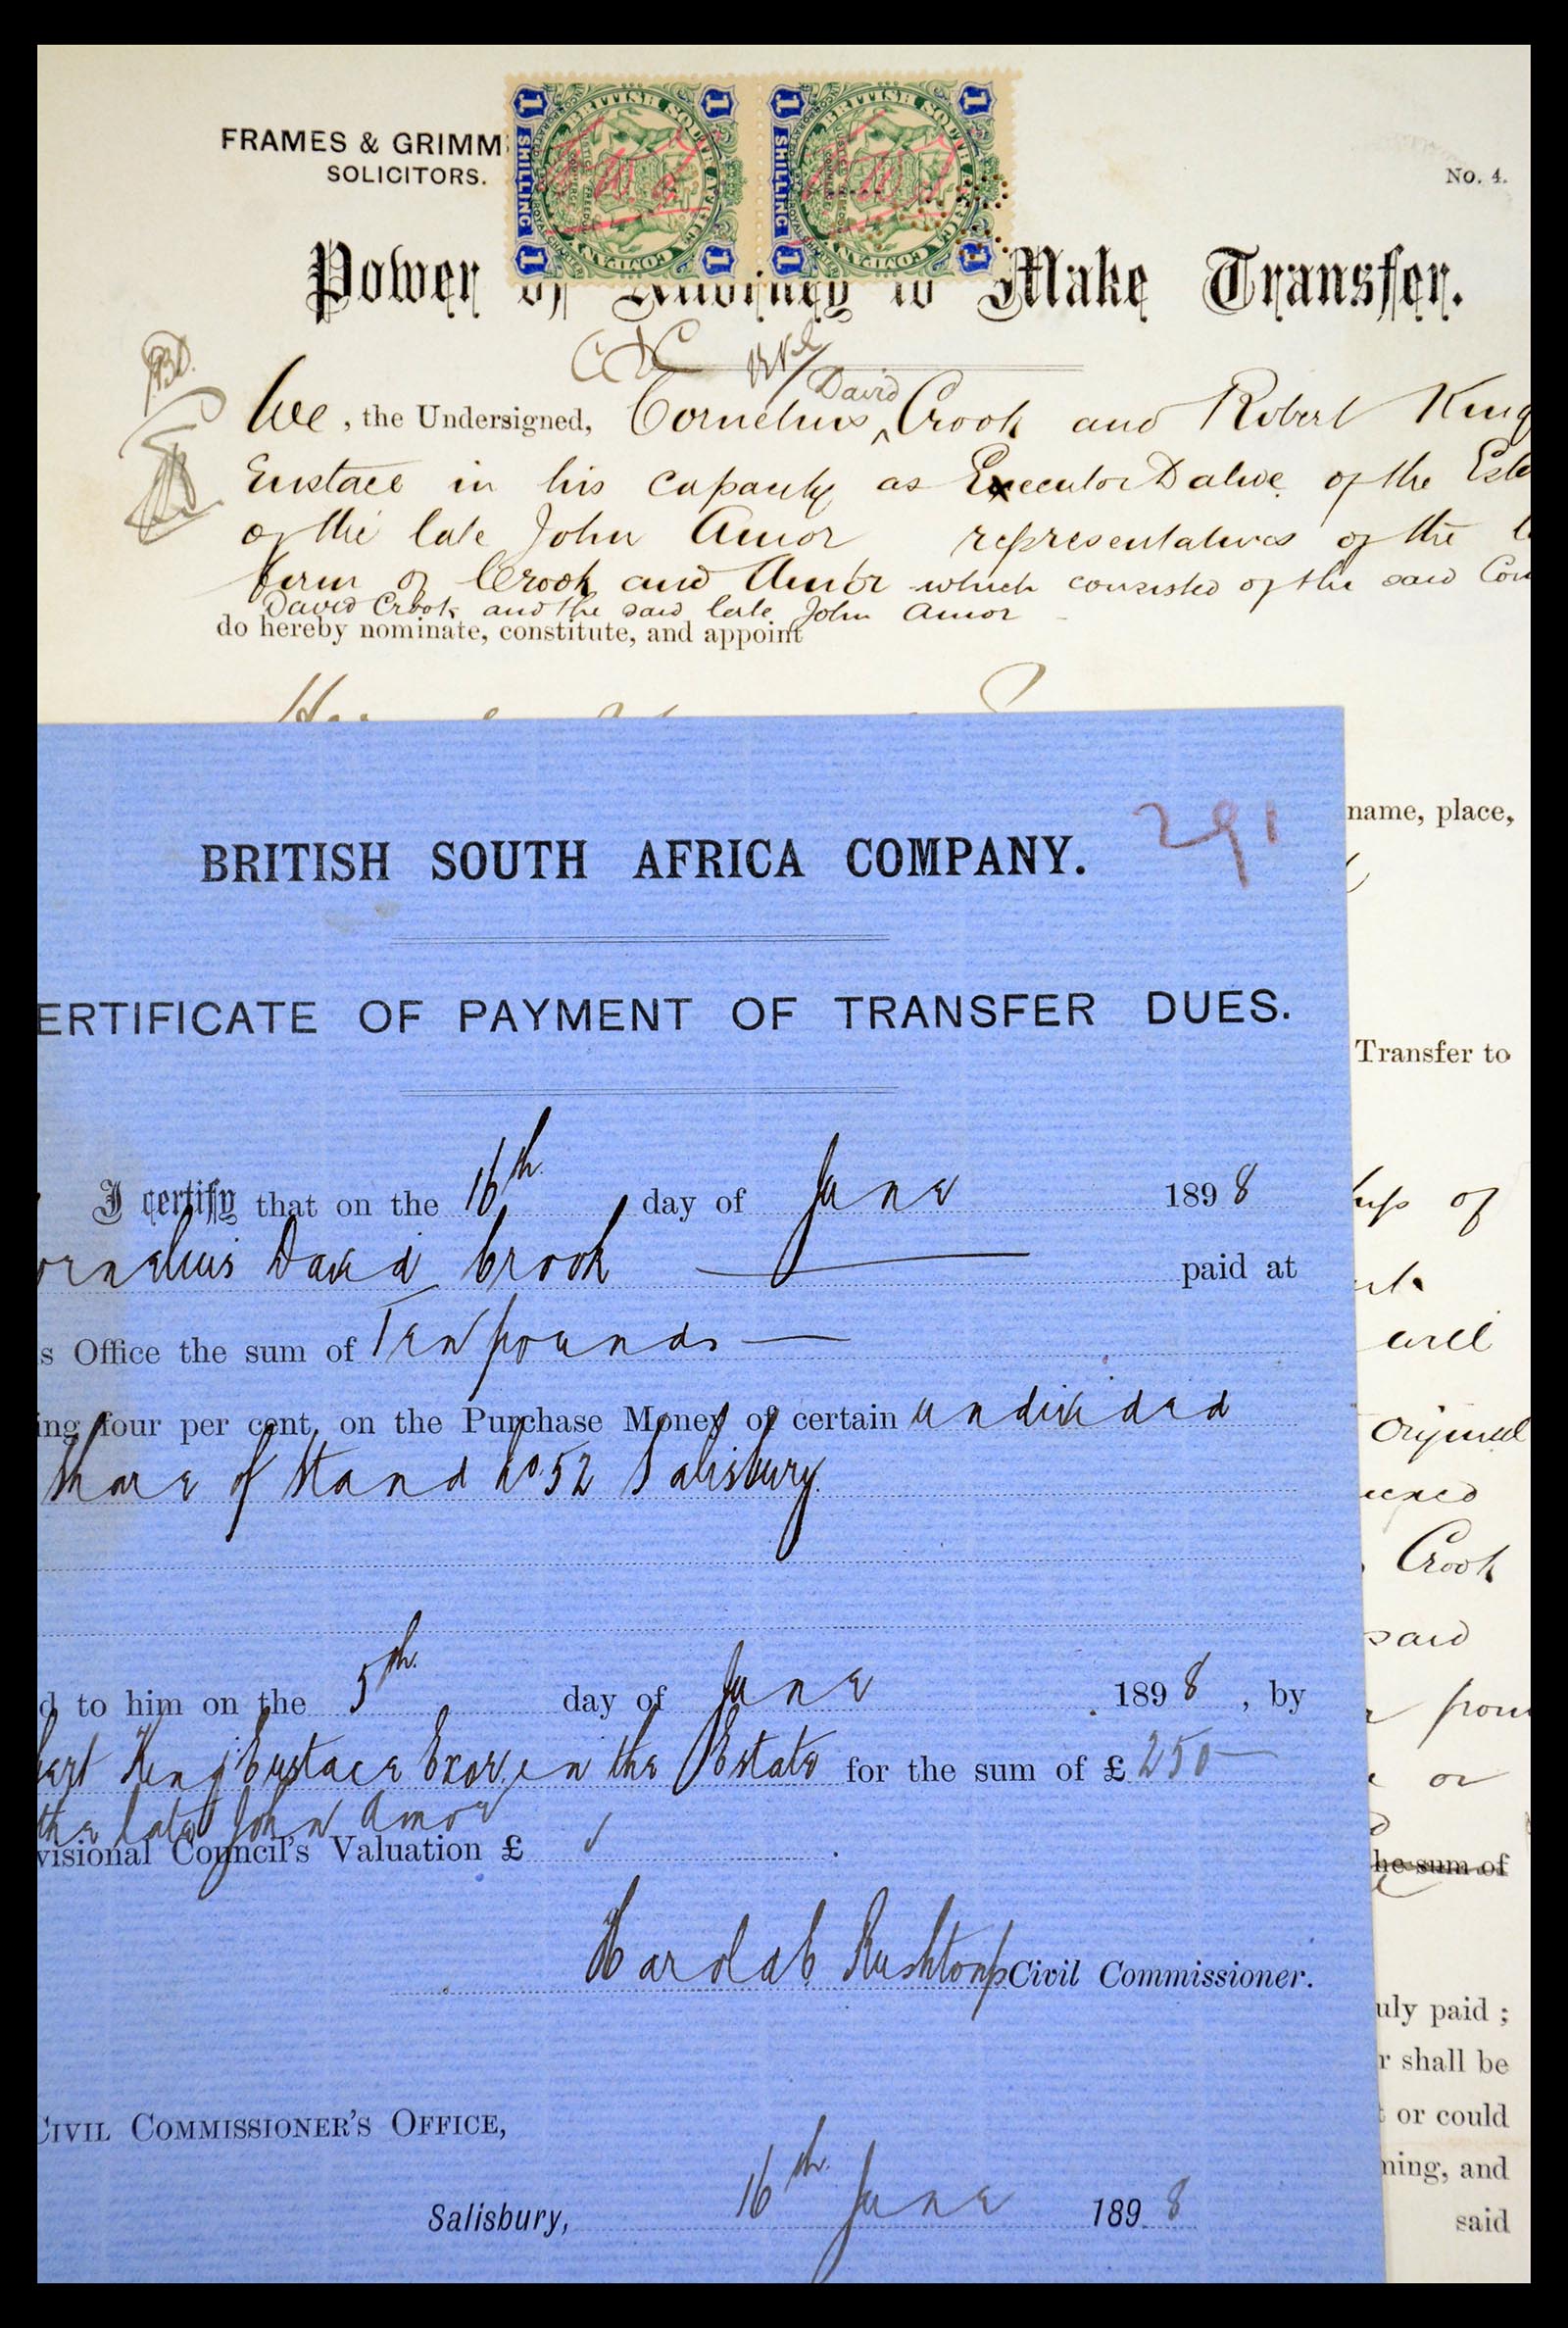 FRAMES & GRIMM
SOLICITORS.
No. 4.
1 SHILLING 1
1 SHILLING 1
BRITISH SOUTH AFRICA COMPANY
BRITISH SOUTH AFRICA COMPANY
Power of Attorney to Make Transfer.
CDC
David
We, the Undersigned, Cornelius Crook and Robert King
Eustace in his capacity as Executor Dative of the Esta
of the late John Amor representatives of the
firm of Crook and Amor which consisted of the said Cor
David Crook and the said late John Amor
do hereby nominate, constitute, and appoint
name, place,
Transfer to
of
will
original
Crook
said
from
or
he sum of
uly paid ;
r shall be
t or could
ning, and
said
291
BRITISH SOUTH AFRICA COMPANY.
ERTIFICATE OF PAYMENT OF TRANSFER DUES.
I certify that on the 16th day of June 1898
ornelius David Crook paid at
s Office the sum of Ten pounds
ing four per cent. on the Purchase Money of certain undivided
share of Stand No. 52 Salisbury.
d to him on the 5th day of June 1898, by
bert King Eustace Exor. in the Estate for the sum of £250
the late John Amor
visional Council's Valuation £
Harold C. Rushton Civil Commissioner.
CIVIL COMMISSIONER'S OFFICE,
Salisbury, 16th June 1898